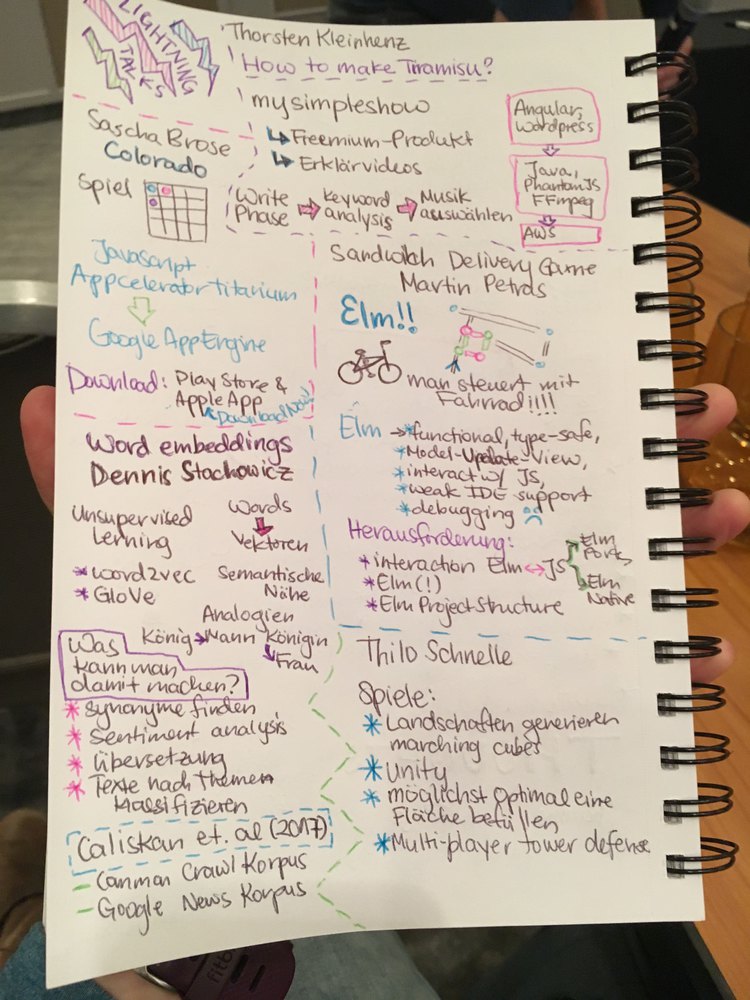 LIGHTNING
TALKS
Thorsten Kleinhenz
How to make Tiramisu?
mysimpleshow
Freemium-Produkt
Erklärvideos
Write Phase
Keyword analysis
Musik auswählen
Angular,
Wordpress
Java,
PhantomJS
FFmpeg
AWS
Sascha Brose
Colorado
Spiel
Javascript
Appcelerator Titanium
Google AppEngine
Download: Play Store &
Apple App
Download Now!
Sandwich Delivery Game
Martin Petrols
Elm!!
man steuert mit
Fahrrad!!!!
Elm → *functional, type-safe,
*Model-Update-View,
*interact w/ JS,
*weak IDE support
*debugging
Herausforderung:
*interaction Elm ↔ JS
Elm Ports
Elm Native
*Elm(!)
*Elm Project Structure
Word embeddings
Dennis Stachowicz
Unsupervised
Lerning
* word2vec
* GloVe
Words
Vektoren
Semantische
Nähe
Analogien
König → Mann Königin
Frau
Was
kann man
damit machen?
* Synonyme finden
* Sentiment analysis
* Übersetzung
* Texte nach Themen
klassifizieren
Caliskan et. al (2017)
- Canman Crawl Korpus
- Google News Korpus
Thilo Schnelle
Spiele:
* Landschaften generieren
marching cubes
* Unity
* möglichst optimal eine
Fläche befüllen
* Multi-player tower defense
fitb